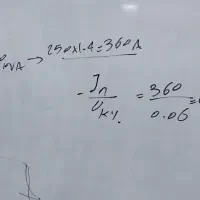 KVA → 250x1.4=360A
- In / Uk% = 360 / 0.06 =